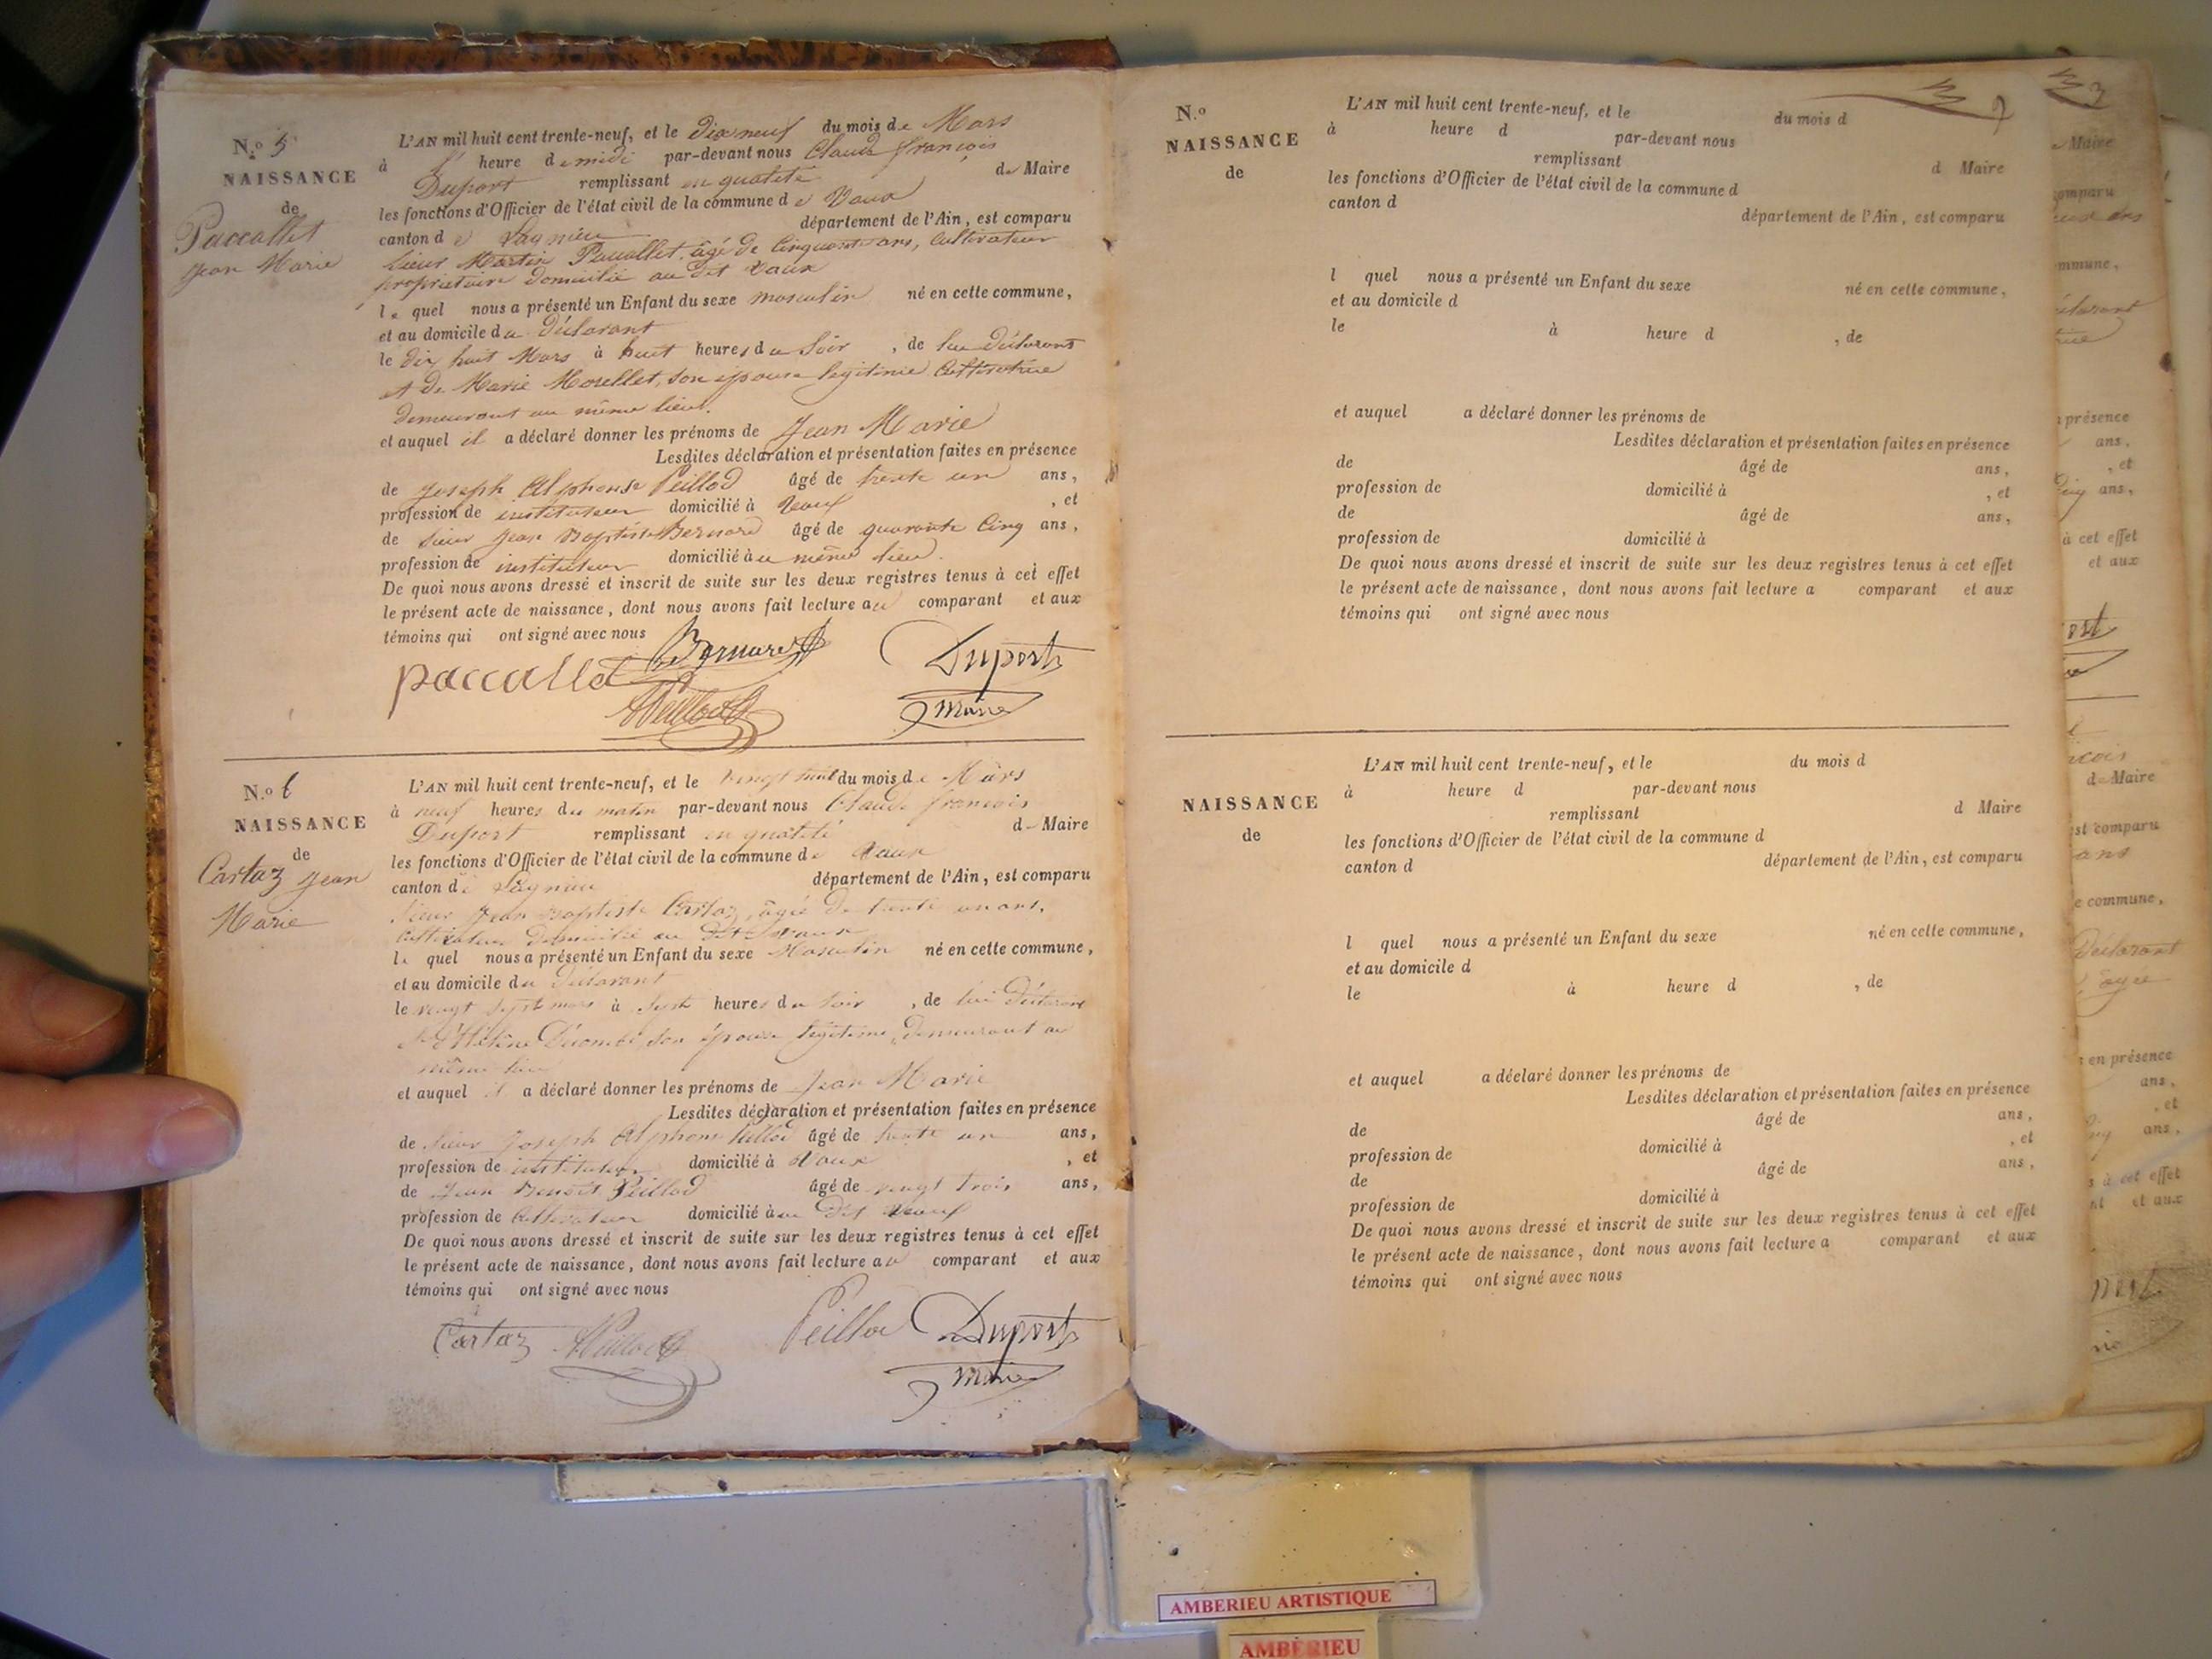 N.º 5
NAISSANCE
de
Paccallet
Jean Marie
L'AN mil huit cent trente-neuf, et le dix neuf du mois de Mars
à heure de midi par-devant nous Claude françois
Duport remplissant en qualité de Maire
les fonctions d'Officier de l'état civil de la commune de Vaux
canton de Lagnieu département de l'Ain, est comparu
Sieur Martin Paccallet, âgé de Cinquante ans, Cultivateur
propriétaire domicilié au dit vaux
le quel nous a présenté un Enfant du sexe masculin né en cette commune,
et au domicile du déclarant
le dix huit Mars à huit heures du Soir, de lui déclarant
et de Marie Morellet, son épouse légitime Cultivatrice
demeurant au même lieu.
et auquel il a déclaré donner les prénoms de Jean Marie
Lesdites déclaration et présentation faites en présence
de Joseph Alphonse Peillod âgé de trente un ans,
profession de instituteur domicilié à Vaux, et
de sieur Jean Baptiste Bernard âgé de quarante Cinq ans,
profession de instituteur domicilié au même lieu.
De quoi nous avons dressé et inscrit de suite sur les deux registres tenus à cet effet
le présent acte de naissance, dont nous avons fait lecture au comparant et aux
témoins qui ont signé avec nous
paccallet Bernard Duport
APeillod maire
N.º 6
NAISSANCE
de
Cartaz Jean
Marie
L'AN mil huit cent trente-neuf, et le vingt huit du mois de Mars
à neuf heures du matin par-devant nous Claude françois
Duport remplissant en qualité de Maire
les fonctions d'Officier de l'état civil de la commune de Vaux
canton de Lagnieu département de l'Ain, est comparu
Sieur Jean Baptiste Cartaz, âgé de trente un ans,
Cultivateur domicilié au dit vaux
le quel nous a présenté un Enfant du sexe Masculin né en cette commune,
et au domicile du déclarant
le vingt sept mars à sept heures du soir, de lui déclarant
et d'Hélène son épouse légitime, demeurant au
même lieu
et auquel il a déclaré donner les prénoms de Jean Marie
Lesdites déclaration et présentation faites en présence
de sieur Joseph Alphonse Peillod âgé de trente un ans,
profession de instituteur domicilié à Vaux, et
de Jean Benoit Peillod âgé de vingt trois ans,
profession de Cultivateur domicilié au dit Vaux
De quoi nous avons dressé et inscrit de suite sur les deux registres tenus à cet effet
le présent acte de naissance, dont nous avons fait lecture au comparant et aux
témoins qui ont signé avec nous
Cartaz APeillod Peillod Duport
maire
N.º
NAISSANCE
de
L'AN mil huit cent trente-neuf, et le du mois d
à heure d par-devant nous
remplissant d Maire
les fonctions d'Officier de l'état civil de la commune d
canton d département de l'Ain, est comparu
l quel nous a présenté un Enfant du sexe né en cette commune,
et au domicile d
le à heure d , de
et auquel a déclaré donner les prénoms de
Lesdites déclaration et présentation faites en présence
de âgé de ans,
profession de domicilié à , et
de âgé de ans,
profession de domicilié à
De quoi nous avons dressé et inscrit de suite sur les deux registres tenus à cet effet
le présent acte de naissance, dont nous avons fait lecture a comparant et aux
témoins qui ont signé avec nous
NAISSANCE
de
L'AN mil huit cent trente-neuf, et le du mois d
à heure d par-devant nous
remplissant d Maire
les fonctions d'Officier de l'état civil de la commune d
canton d département de l'Ain, est comparu
l quel nous a présenté un Enfant du sexe né en cette commune,
et au domicile d
le à heure d , de
et auquel a déclaré donner les prénoms de
Lesdites déclaration et présentation faites en présence
de âgé de ans,
profession de domicilié à , et
de âgé de ans,
profession de domicilié à
De quoi nous avons dressé et inscrit de suite sur les deux registres tenus à cet effet
le présent acte de naissance, dont nous avons fait lecture a comparant et aux
témoins qui ont signé avec nous
Maire
présence
ans,
, et
ans,
à cet effet
et aux
de Maire
st comparu
ans
e commune,
en présence
ans,
, et
ans,
à cet effet
et aux
AMBERIEU ARTISTIQUE
AMBERIEU